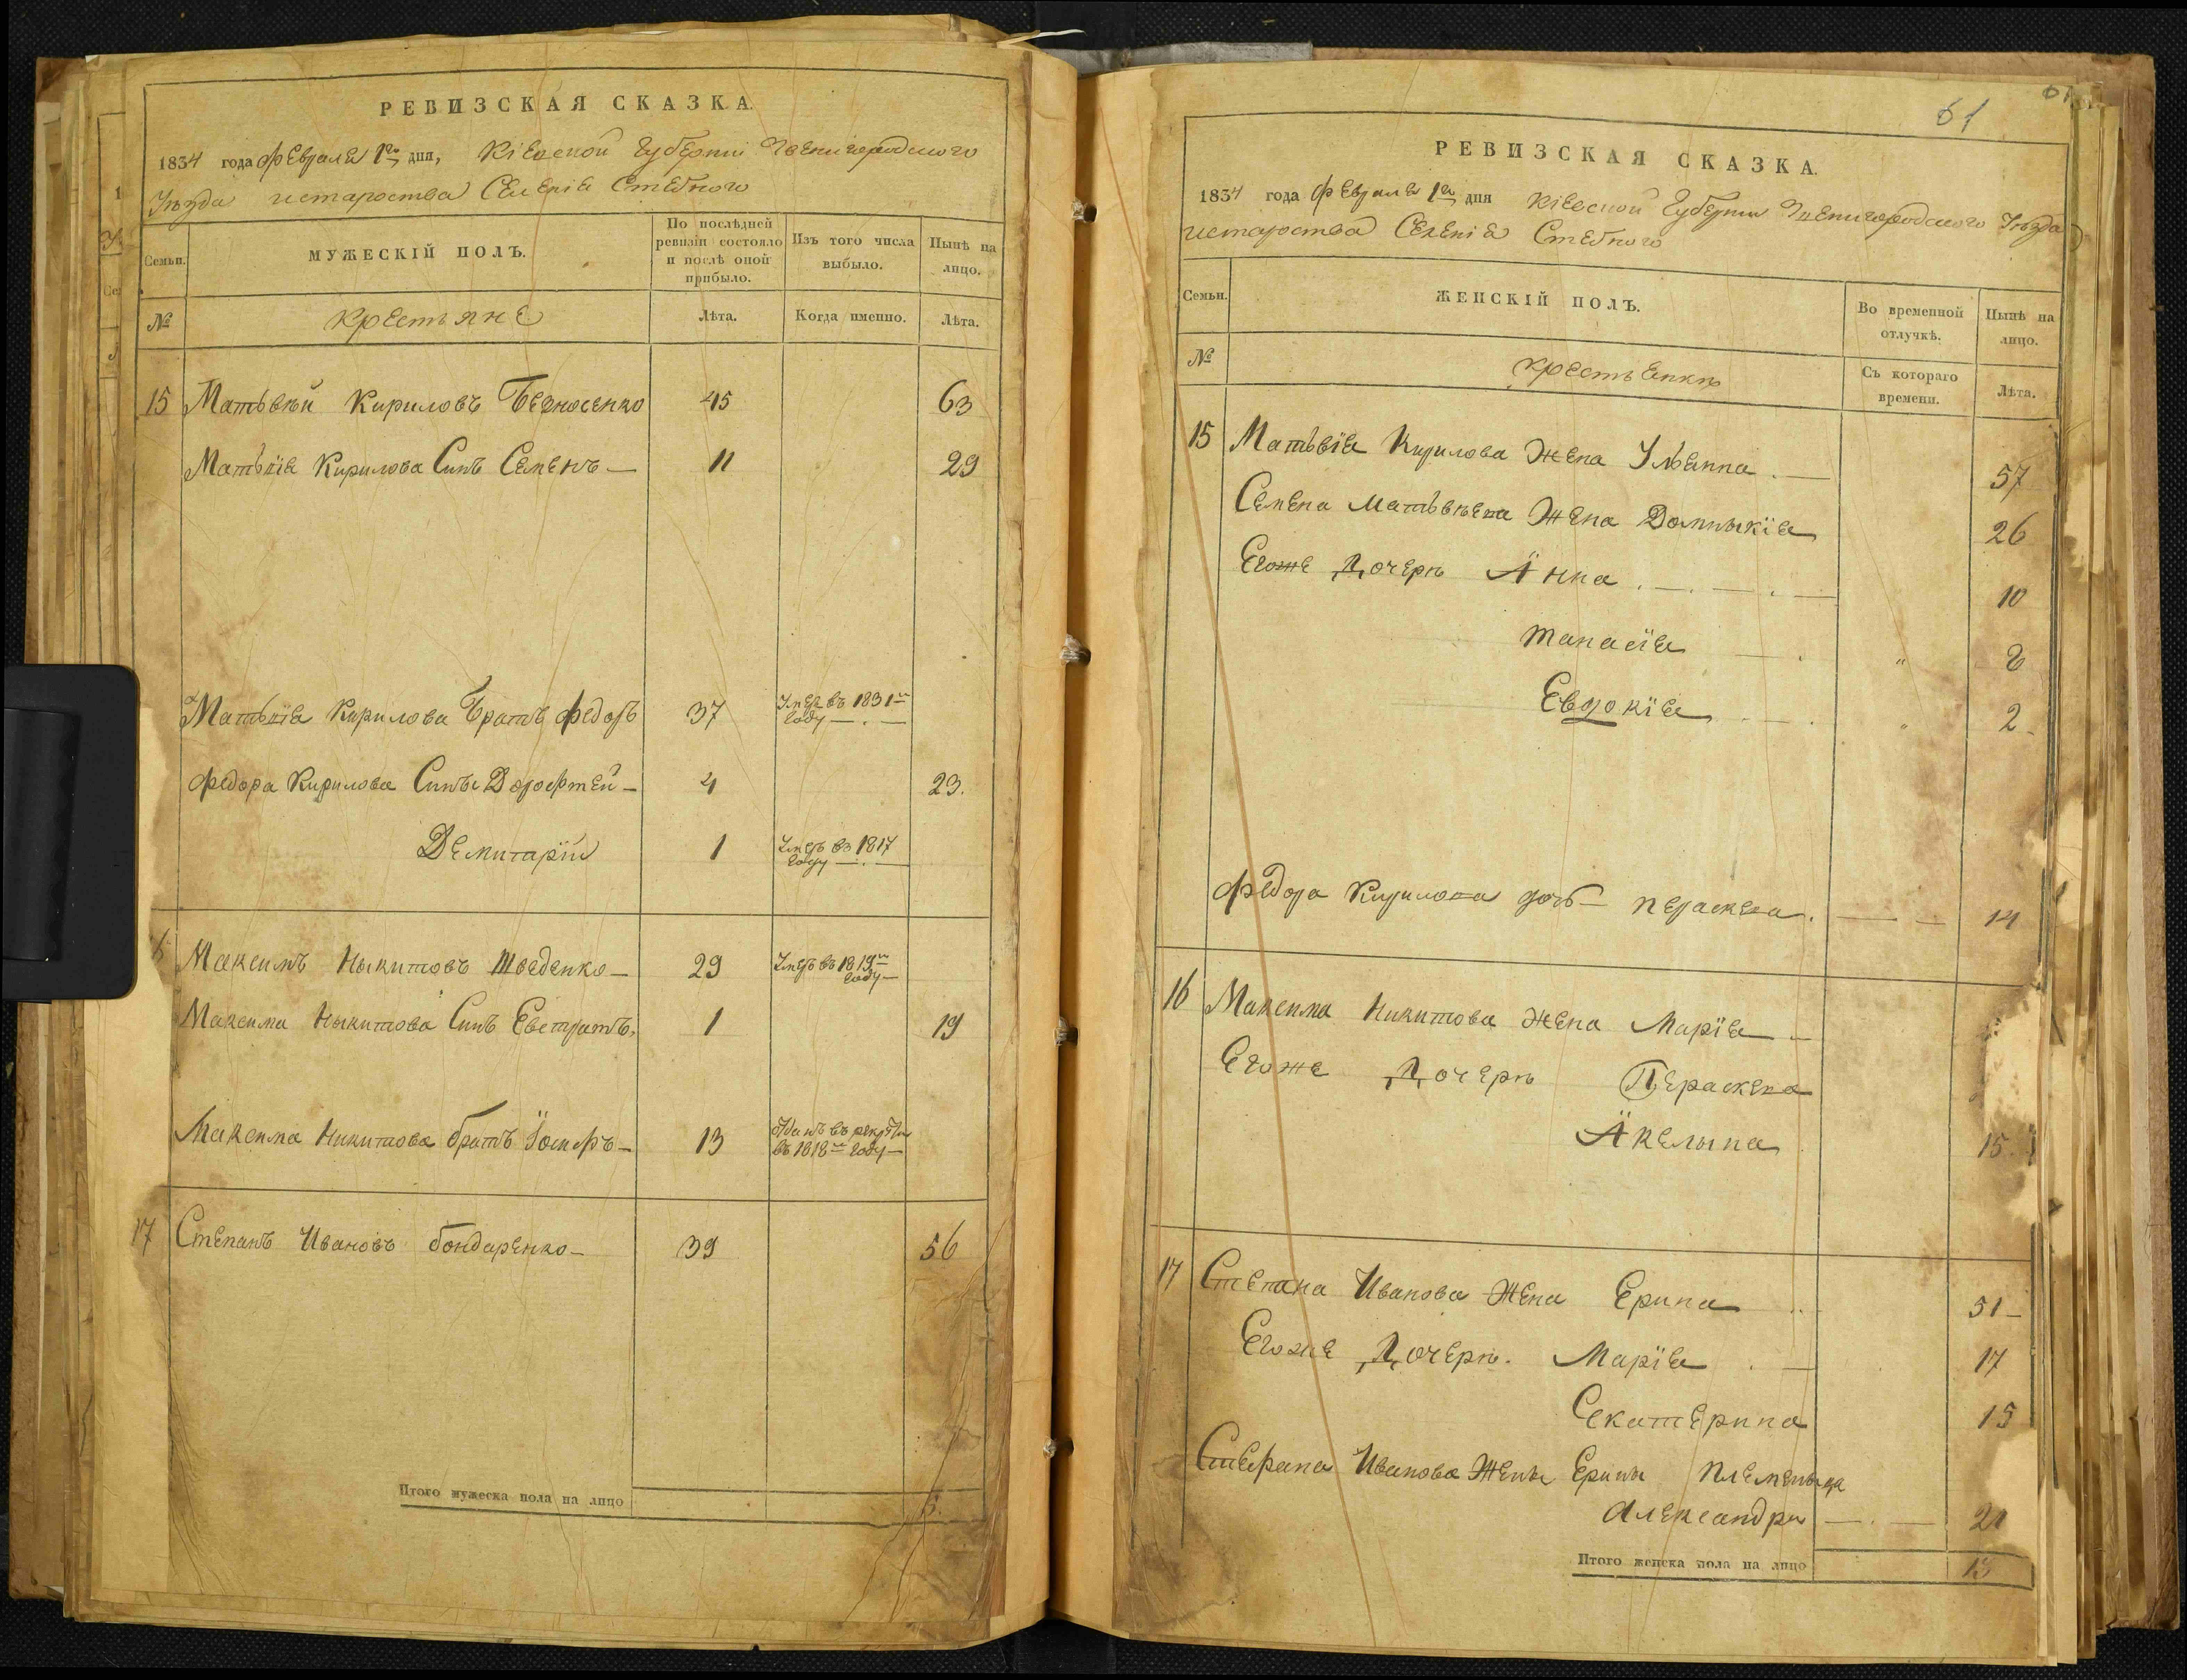 РЕВИЗСКАЯ СКАЗКА.
1834 года февраля 1го дня, Кіевской Губерніи Звенигородского
Уѣзда и староства Селенія Стебного
Семьи.
МУЖЕСКІЙ ПОЛЪ.
По послѣдней ревизіи состояло и послѣ оной прибыло.
Изъ того числа выбыло.
Нынѣ на лицо.
№
Крестьяне
Лѣта.
Когда именно.
Лѣта.
15 Матьвѣй Кириловъ 45 63
Матьвія Кирилова Синъ Семенъ — 11 29
Матьвія Кирилова Братъ Федоръ 37 Умеръ въ 1831м году
Федора Кирилова Сины Дорофтей — 4 23.
Демитарій 1 Умеръ въ 1817 году
Максимъ Ныкитовъ Шведенко — 29 Умеръ въ 1819м году
Максима Ныкитова Синъ Евстратъ. 1 19
Максима Никитова братъ 13 въ 1818м году
17 Степанъ Ивановъ бондаренко — 39 56
Итого мужеска пола на лицо
61
РЕВИЗСКАЯ СКАЗКА.
1834 года февраля 1го дня Кіевской Губерніи Звенигородского Уѣзда
и староства Селенія Стебного
Семьи.
ЖЕНСКІЙ ПОЛЪ.
Во временной отлучкѣ.
Нынѣ на лицо.
№
крестьенкѣ
Съ котораго времени.
Лѣта.
15 Матьвія Кирилова Жена Ульянна 57
Семена Матьвѣева Жена Домныкія 26
Егоже Дочерѣ Анна 10
8
Евдокія 2
Федора Кирилова дочь — Пераскева. 14
16 Максима Никитова жена Марія —
Егоже Дочерѣ Пераскева
Акелына 15.
17 Степана Иванова Жена Ерина 51 —
Егоже Дочерѣ. Марія 17
Екатерина 15
Стефана Иванова Жены Ерины племеныца
Александра 21
Итого женска пола на лицо 13